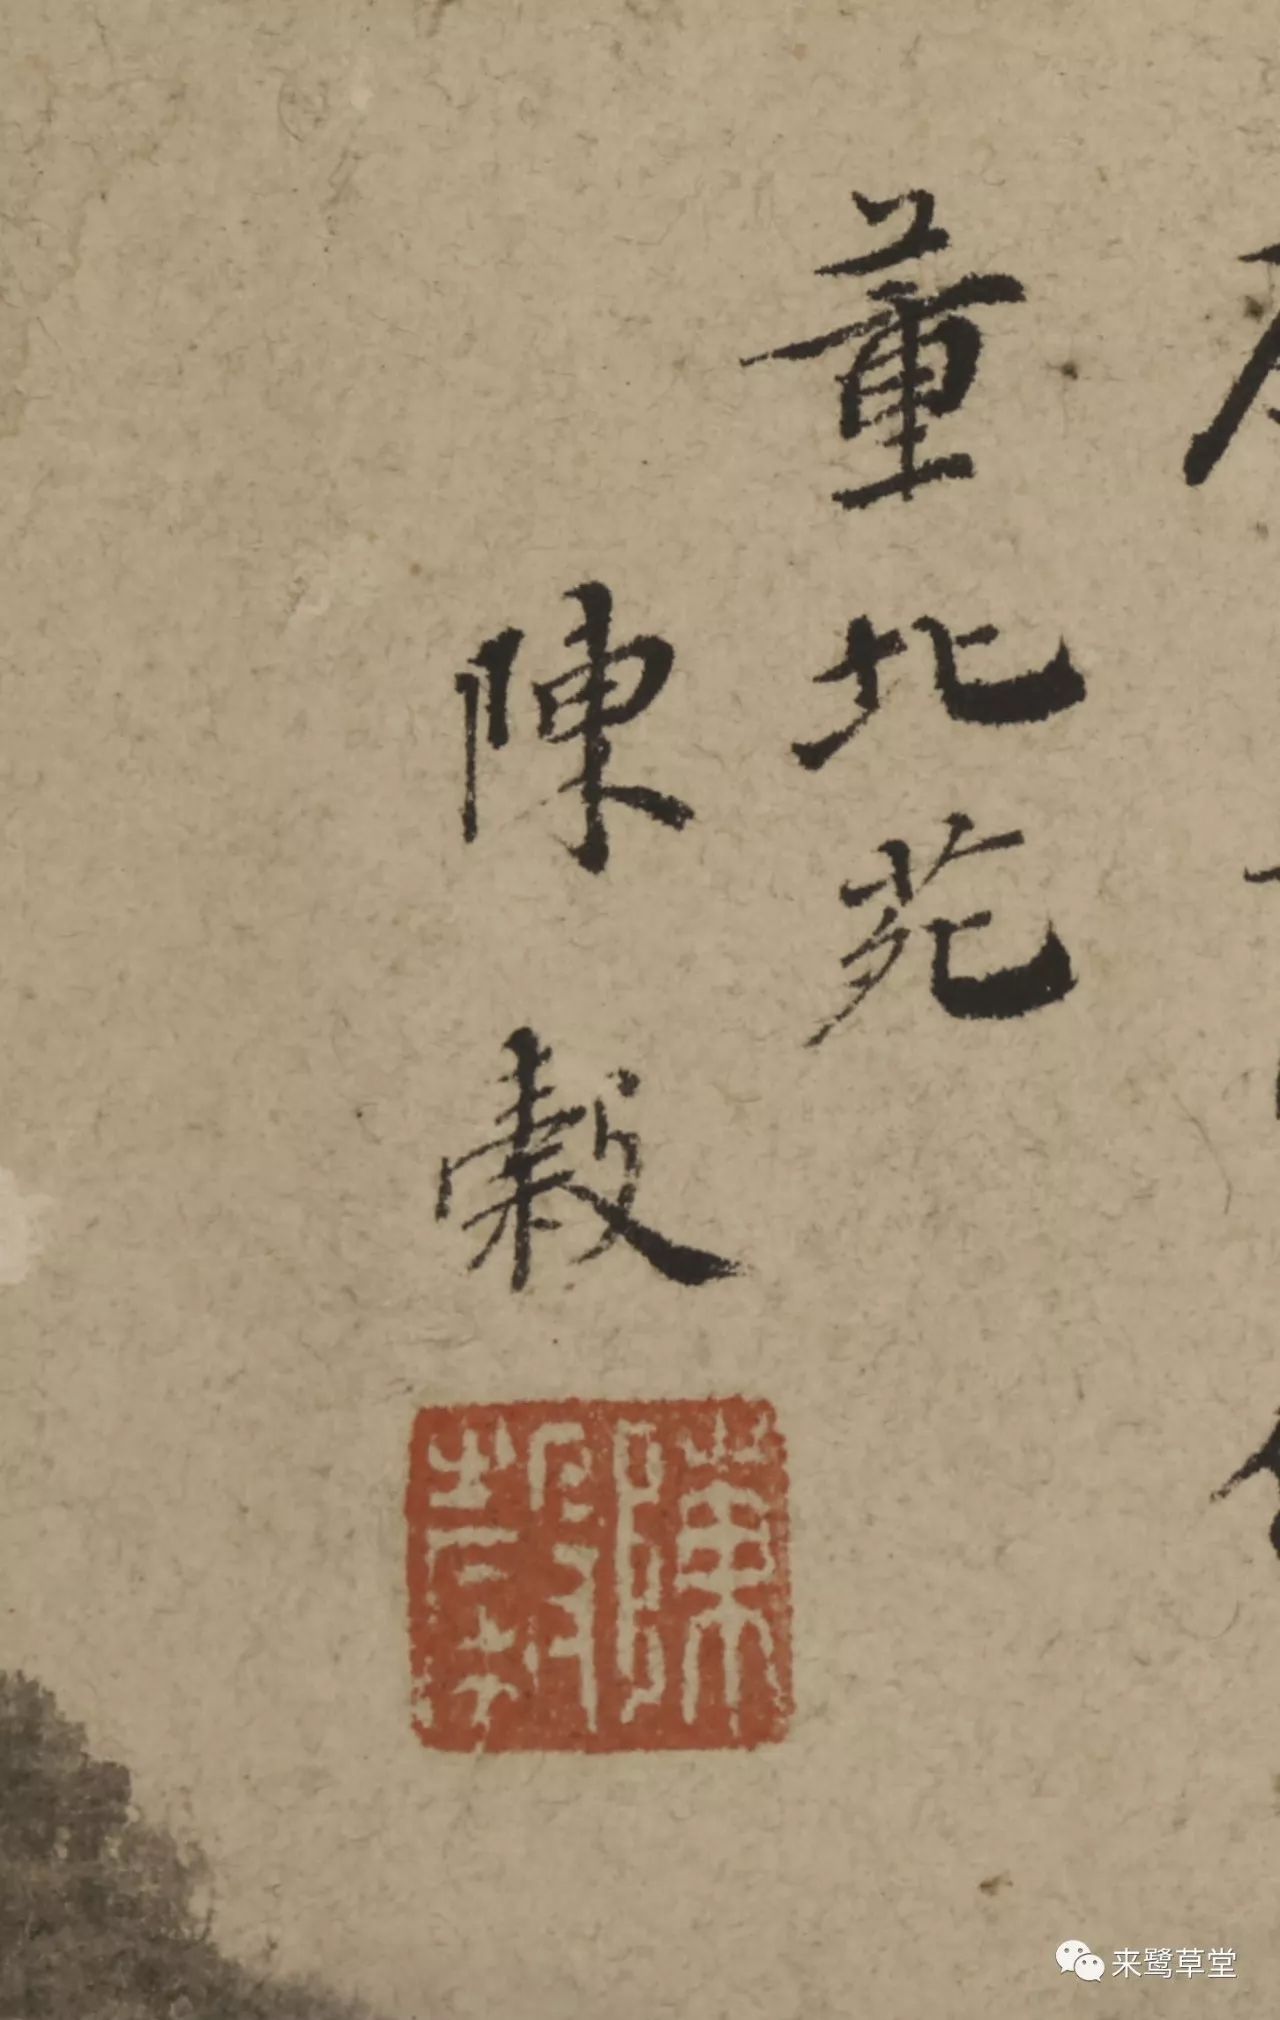 董北苑
陳穀
陳穀
来鹭草堂